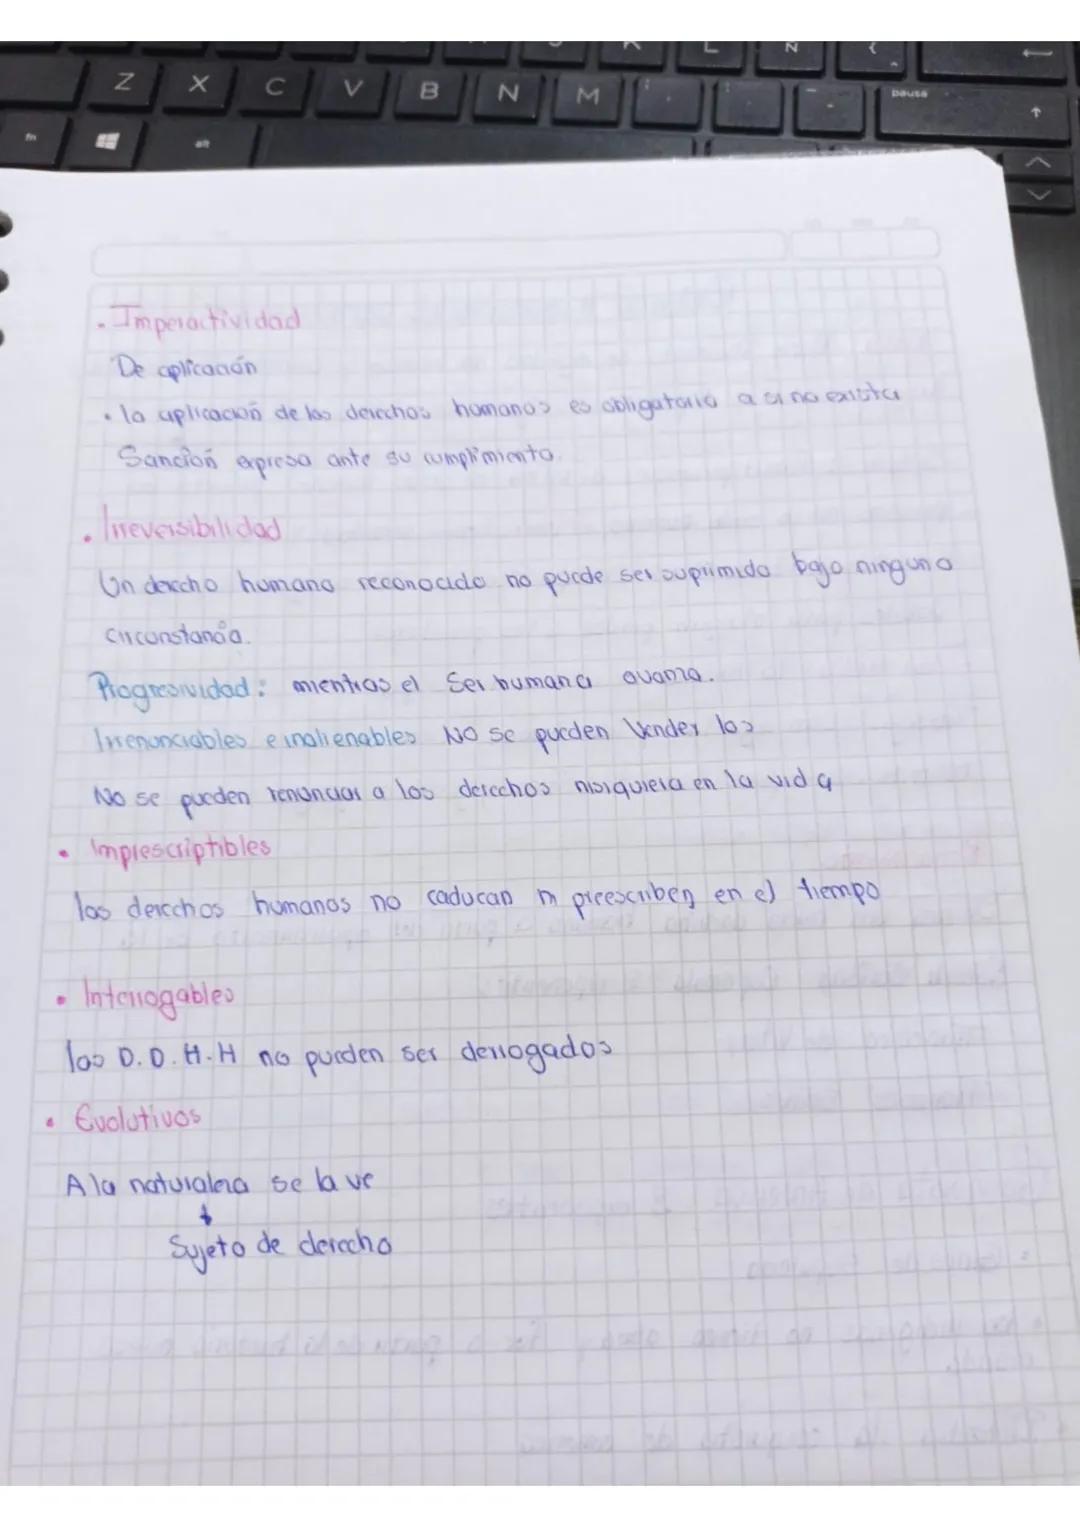 Z X C V B N M
pausa
fn alt
• Imperactividad
De aplicación
• la aplicación de los derechos humanos es obligatorio a si no exista
Sanción expresa ante su cumplimiento.
• Irreversibilidad
Un derecho humano reconocido no puede ser suprimido bajo ninguna
circunstancia.
Progresividad: mientras el Ser humana avanza.
Irrenunciables e inalienables NO se pueden Vender los
No se pueden renunciar a los derechos nisiquiera en la vida
• Imprescriptibles
los derechos humanos no caducan ni preescriben en el tiempo
• Interrogables
los D.D.H.H no pueden ser derrogados
• Evolutivos
A la naturaleza se la ve
↓
Sujeto de derecho